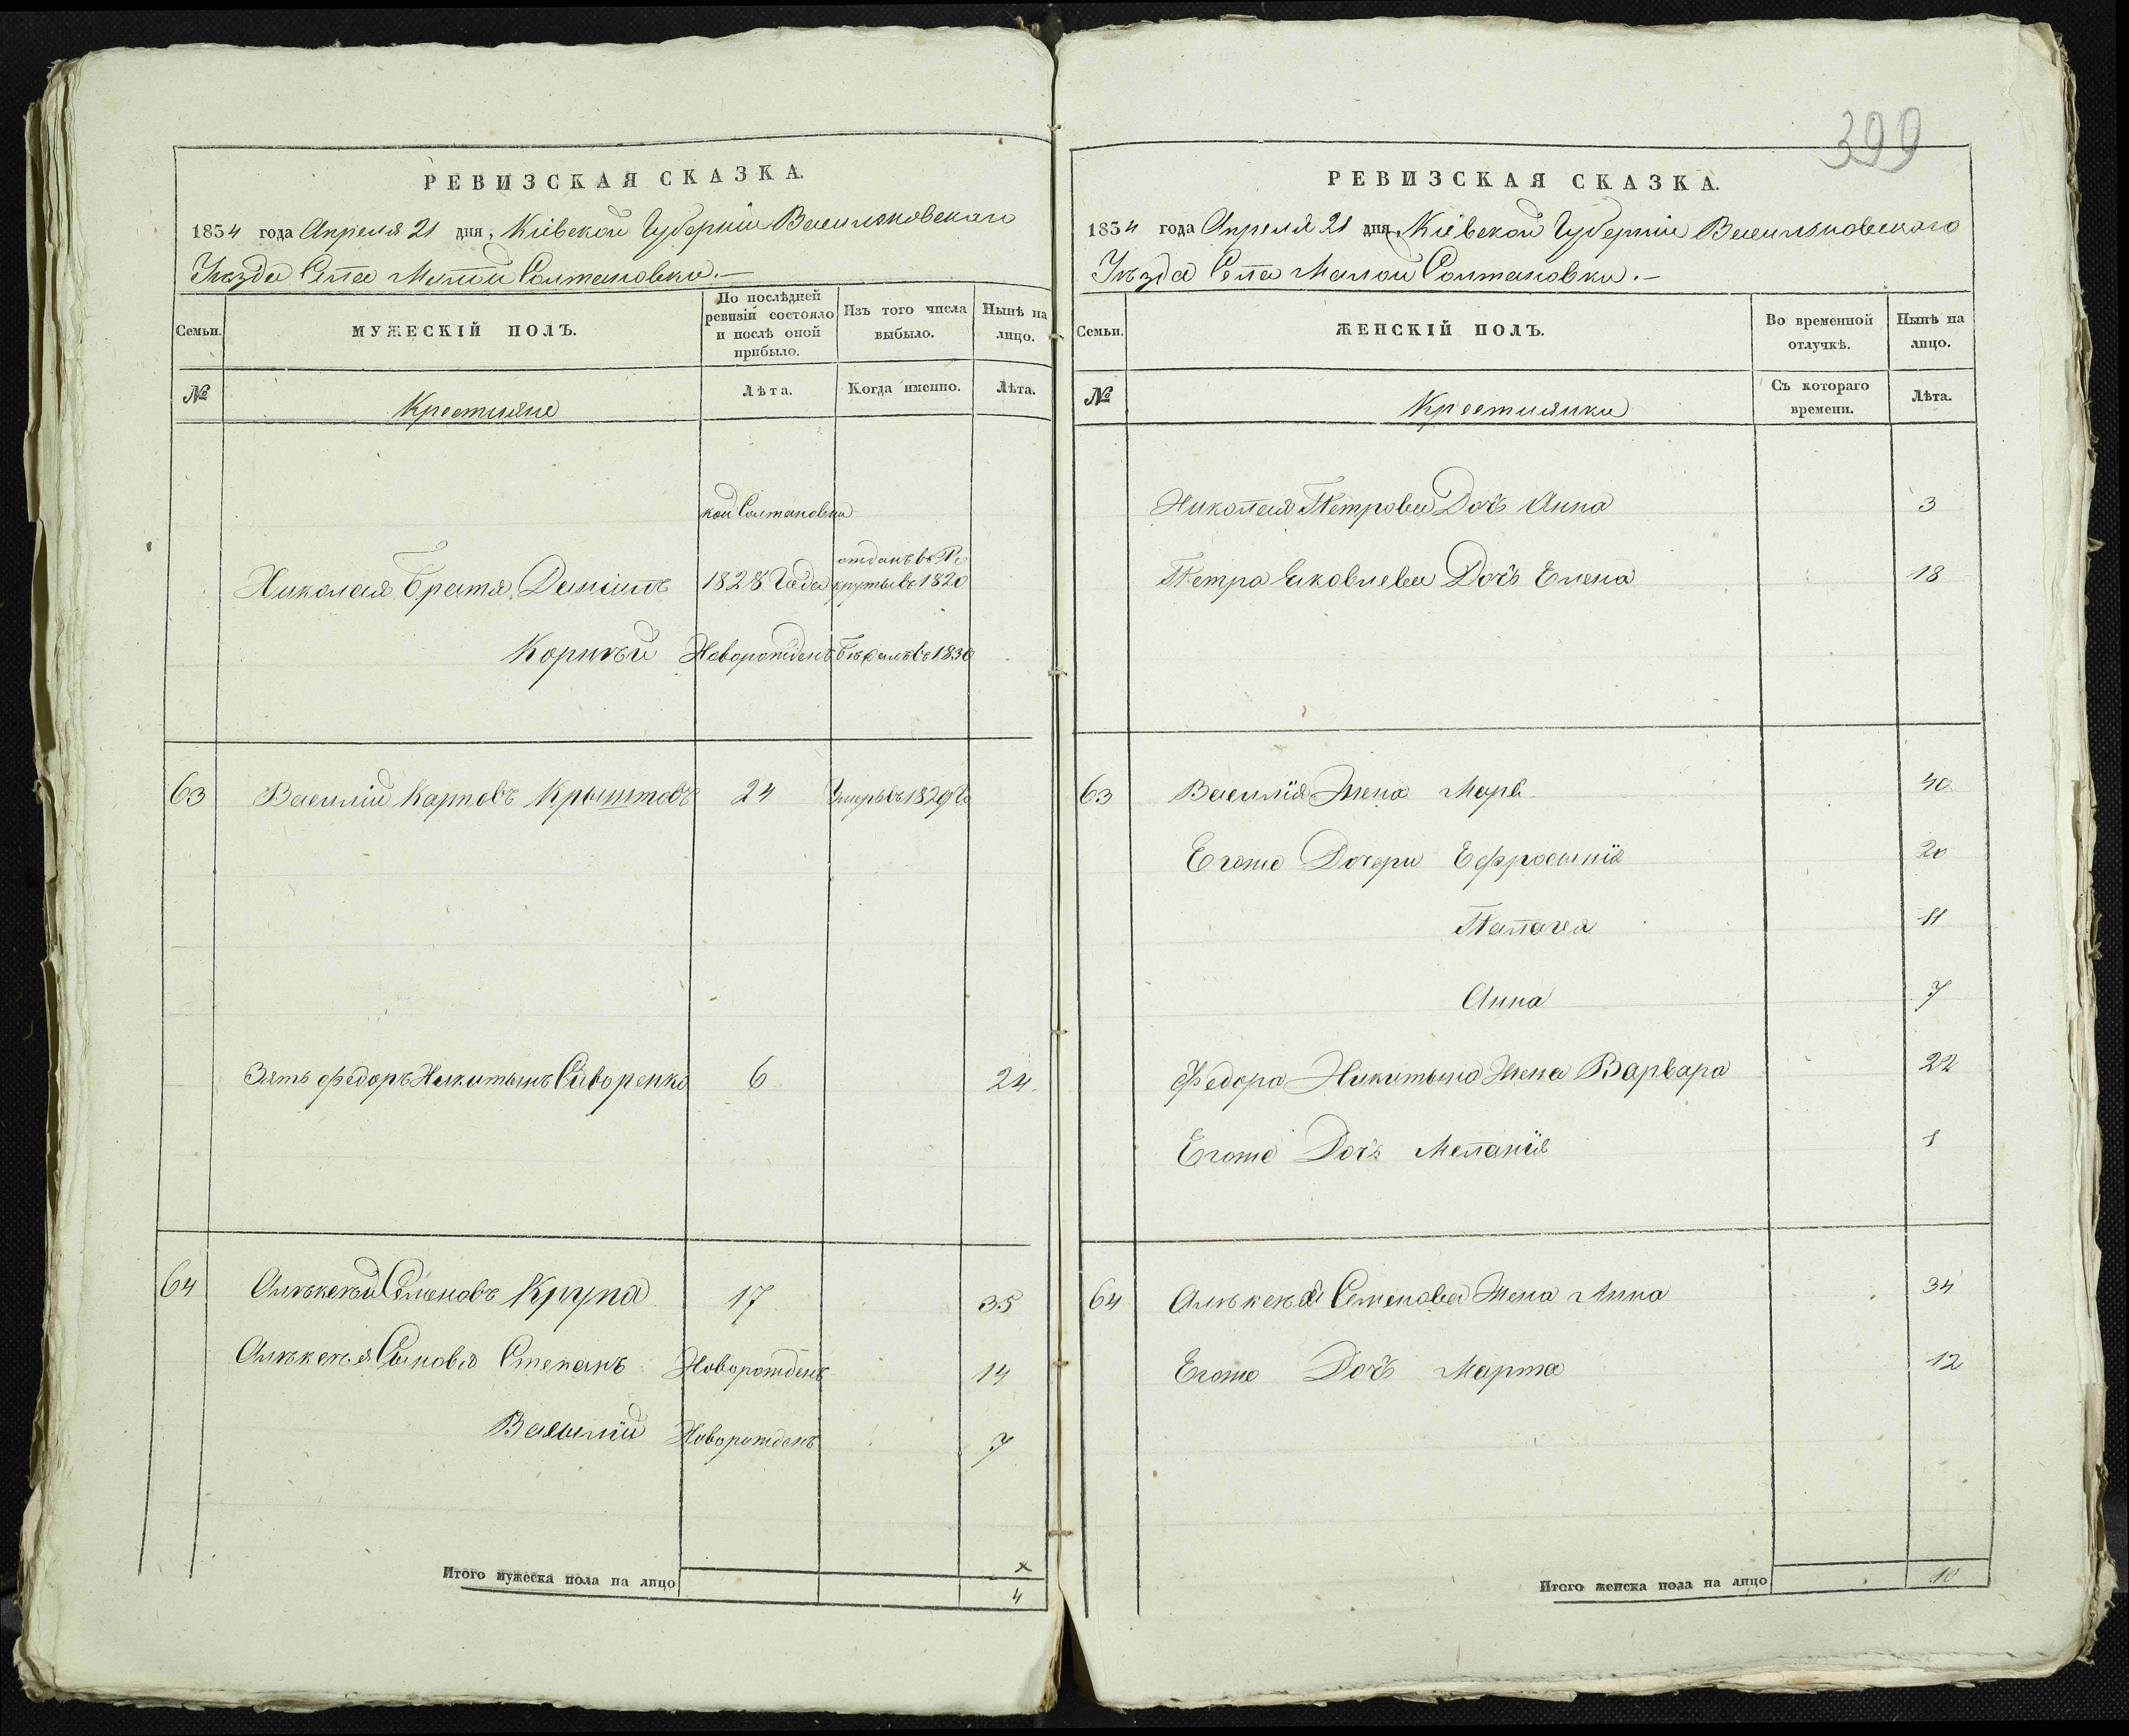 399
РЕВИЗСКАЯ СКАЗКА.
1834 года Апреля 21 дня, Кіевской Губерніи Васильковскаго
Уѣзда Села Малой Солтановки.—
Семьи.
МУЖЕСКІЙ ПОЛЪ.
По послѣдней ревизіи состояло и послѣ оной прибыло.
Изъ того числа выбыло.
Нынѣ на лицо.
№
Крестьяне
Лѣта.
Когда именно.
Лѣта.
кой Солтановки
Николая Братья Даніилъ 1828 Года отданъ въ Рекруты въ 1820
Корнѣй Новорожденъ Бѣжалъ въ 1830
63 Василій Карповъ Крыштобъ 24 Умеръ въ 1829 Го
Зять Федоръ Никитынъ Сиворенко 6 24.
64 Алѣксѣй Семеновъ Крупа 17 35
Алѣксѣя Сыновья Степанъ Новорожденъ 14
Василій Новорожденъ 7
Итого мужеска пола на лицо
4
РЕВИЗСКАЯ СКАЗКА.
1834 года Апреля 21 дня, Кіевской Губерніи Васильковскаго
Уѣзда Села Малой Солтановки.—
Семьи.
ЖЕНСКІЙ ПОЛЪ.
Во временной отлучкѣ.
Нынѣ на лицо.
№
Крестьянки
Съ котораго времени.
Лѣта.
Николая Петрова Дочь Анна 3
Петра Яковлева Дочь Елена 18
63 Василія Жена Марѳ 40
Егоже Дочери Ефросынія 20
Палагея 11
Анна 7
Федора Никитына Жена Варвара 22
Егоже Дочь Меланія 1
64 Алѣксѣя Семенова Жена Анна 34
Егоже Дочь Марта 12
Итого женска пола на лицо 10